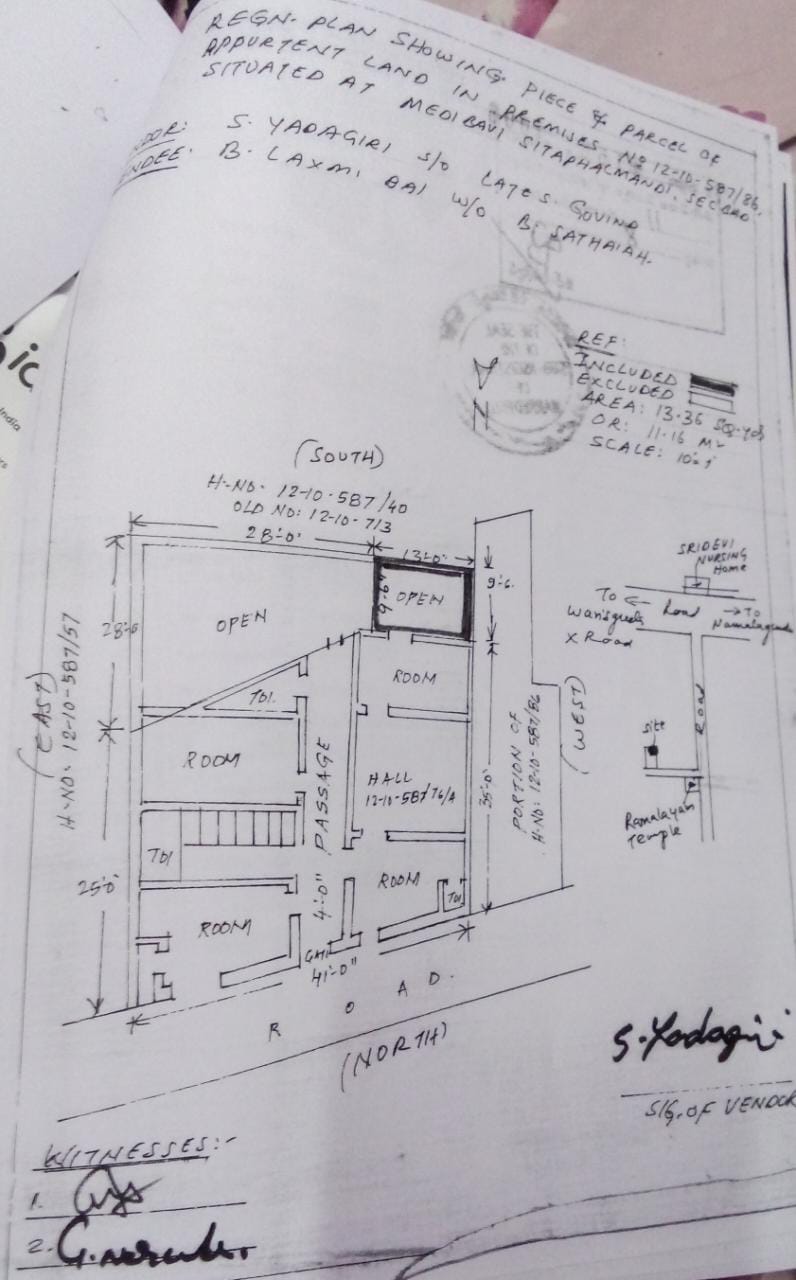 REGN. PLAN SHOWING PIECE & PARCEL OF
APPURTENT LAND IN PREMISES. NO 12-10-587/86.
SITUATED AT MEDIBAVI SITAPHALMANDI. SEC'BAD
S. YADAGIRI S/O LATE S. GOVIND
B. LAXMI BAI W/O B. SATHAIAH.
REF:
INCLUDED
EXCLUDED
AREA: 13.36 SQ.YDS
OR: 11.16 M²
SCALE: 10'=1"
N
(SOUTH)
H-NO. 12-10-587/40
OLD NO: 12-10-713
28'-0"
13'-0"
9'-6"
9'-6.
OPEN
OPEN
28'-0
(EAST)
H-NO: 12-10-587/57
TOI.
ROOM
ROOM
PASSAGE
HALL
12-10-587/76/A
35'-0"
PORTION OF
H-NO: 12-10-587/86
(WEST)
TOI
25'-0"
ROOM
4'-0"
ROOM
TOI
41'-0"
ROAD.
(NORTH)
SRIDEVI
NURSING
Home
To
X Road
Road
To
Road
Site
Ramalayam
Temple
S. Yadagiri
SIG. OF VENDOR
WITNESSES:-
1.
2.